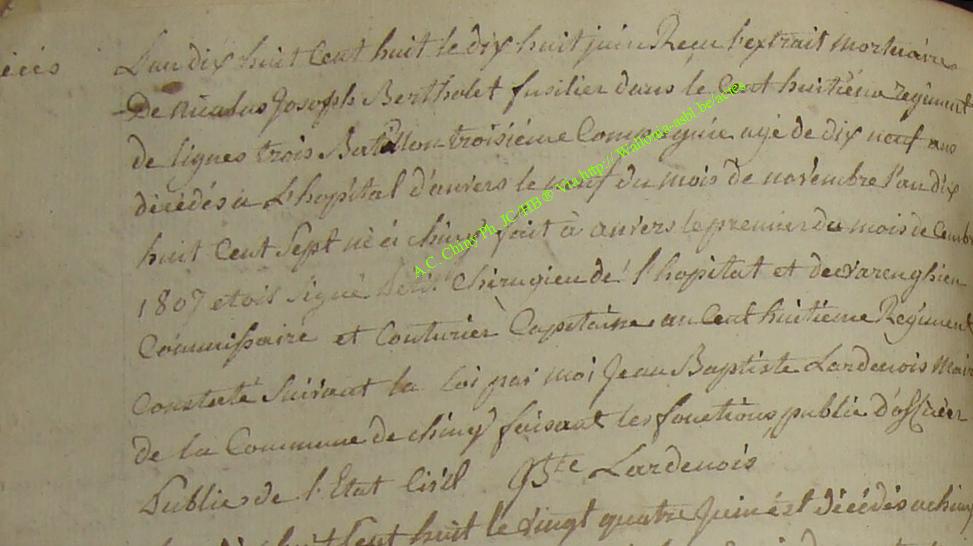 L'an dix huit Cent huit le dix huit juin Reçu l'extrait mortuaire
De nicolas Joseph Bertholet fusilier dans le Cent huitiéme regiment
de lignes trois Bataillon troisiéme Compagnie agé de dix neuf ans
décédés a L'hopital d'anvers le neuf du mois de novembre l'an dix
huit Cent Sept né à chiny fait à anvers le premier du mois de Cembre
1807 etois Signé chirugien de l'hopital et devarenghien
Commissaire et Couturier Capitaine au Cent huitieme Régiment
Constaté Suivant la loi par moi Jean Baptiste Lardenois Mair
de la Commune de chiny faisant les fonctions public d'officier
Public de l'Etat Civil JBte Lardenois
huit Cent huit le vingt quatre Juin est décédés a chiny
A.C. Chiny Ph JC/HB ® Via http:// Wallonia-asbl.be/actes